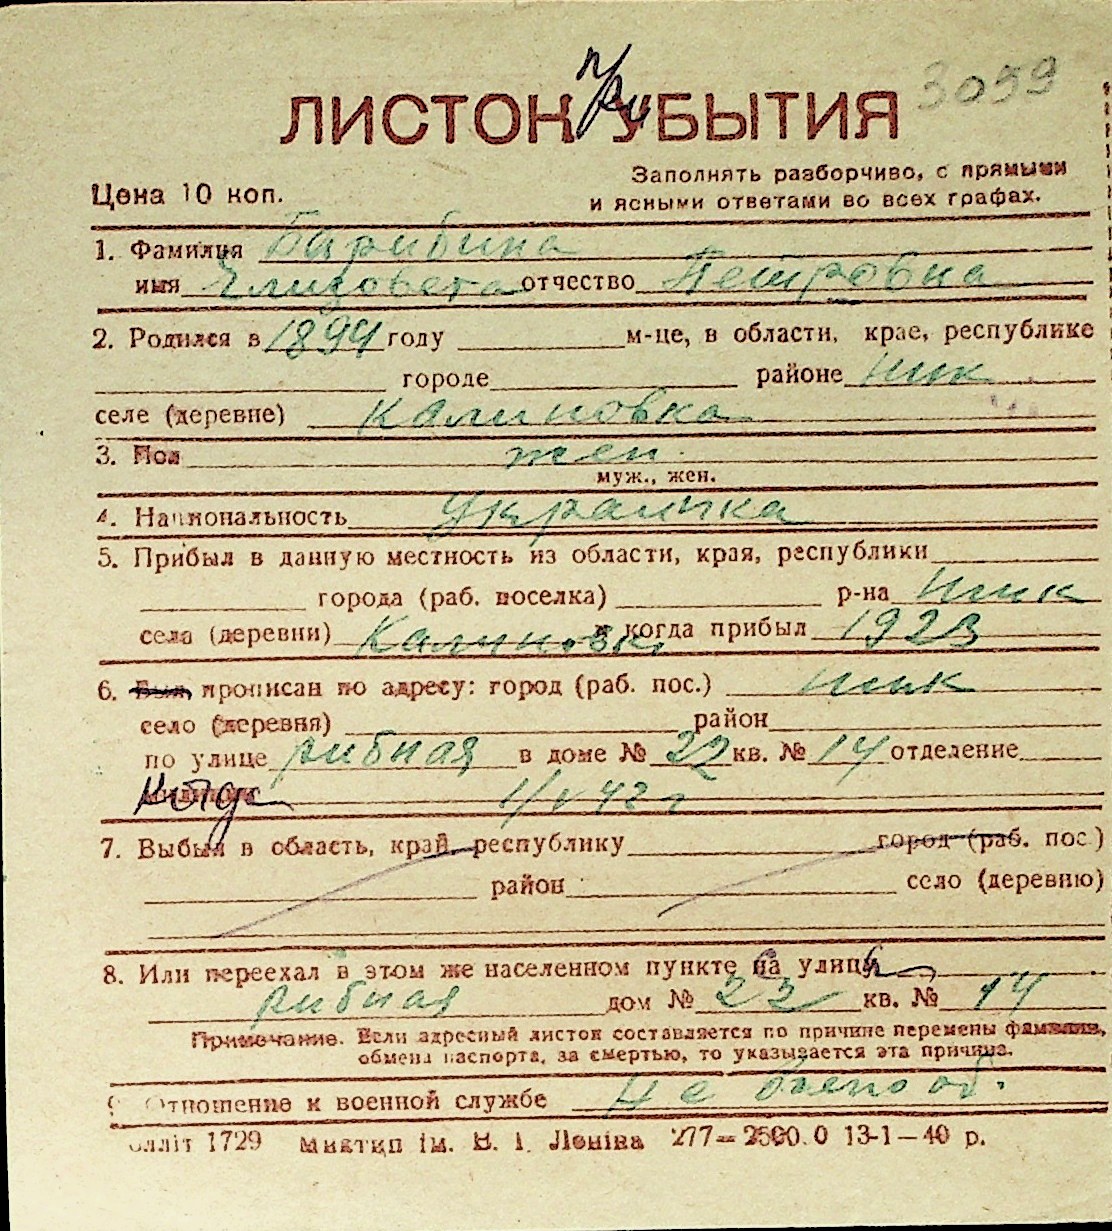 3059
ЛИСТОК при УБЫТИЯ
Цена 10 коп.
Заполнять разборчиво, с прямыми
и ясными ответами во всех графах.
1. Фамилия Барибина
имя Елизовета отчество Петровна
2. Родился в 1894 году м-це, в области, крае, республике
городе районе Ник
селе (деревне) Калиновка
3. Пол жен.
муж., жен.
4. Национальность Украинка
5. Прибыл в данную местность из области, края, республики
города (раб. поселка) р-на Ник
села (деревни) Калиновк. и когда прибыл 1923
6. Был прописан по адресу: город (раб. пос.) Ник
село (деревня) район
по улице рибная в доме № 22 кв. № 14 отделение
Когда 1/V 42 г
7. Выбыл в область, край, республику город (раб. пос.)
район село (деревню)
8. Или переехал в этом же населенном пункте на улицу
рибная дом № 22 кв. № 14
Примечание. Если адресный листок составляется по причине перемены фамилии,
обмена паспорта, за смертью, то указывается эта причина.
Отношение к военной службе Не воено об.
1729 ім. В. І. Леніна 277— 2500.0 13-1—40 р.